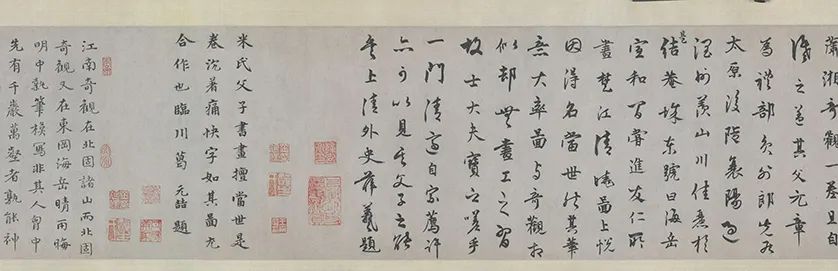 瀟湘奇觀
識之蓋其父元章
為禮部員外郎先居
太原後陟襄陽過
潤州羨山川佳意於
是
結菴城東號曰海岳
宣和間嘗進友仁所
畫楚江清曉圖上悅
因得名當世然其筆
意大率圖与奇觀相
似却無畫工之習
故士大夫寶之嗟乎
一門清適自家薦許
亦可以見其父子之能
矣上清外史薛羲題
米氏父子書畫擅當世是
卷沉着痛快字如其圖尤
合作也臨川葛元喆題
江南奇觀在北固諸山而北固
奇觀又在東岡海岳晴雨晦
明中執筆模寫非其人胷中
先有千巖萬壑者孰能神